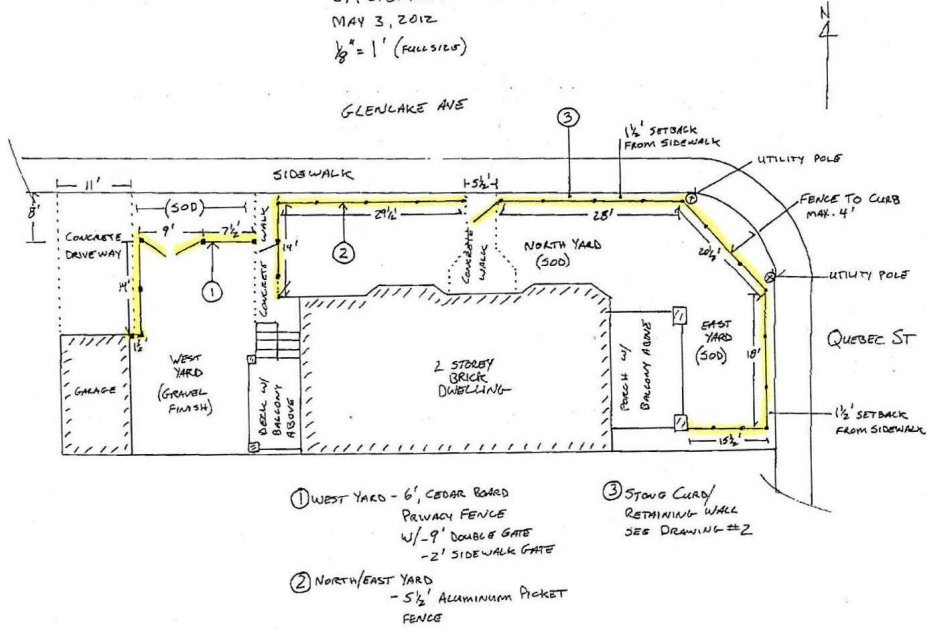 MAY 3, 2012
1/8" = 1' (FULL SIZE)
N
GLENLAKE AVE
③
1½' SETBACK
FROM SIDEWALK
UTILITY POLE
SIDEWALK
11'
5½'
8'
(SOD)
9'
7½'
29½'
28'
FENCE TO CURB
MAX. 4'
CONCRETE
DRIVEWAY
CONCRETE WALK
14'
14'
②
CONCRETE
WALK
NORTH YARD
(SOD)
20½'
UTILITY POLE
①
1½'
GARAGE
WEST
YARD
(GRAVEL
FINISH)
DECK W/
BALCONY
ABOVE
2 STOREY
BRICK
DWELLING
PORCH W/
BALCONY ABOVE
EAST
YARD
(SOD)
18'
QUEBEC ST
15½'
1½' SETBACK
FROM SIDEWALK
① WEST YARD - 6', CEDAR BOARD
PRIVACY FENCE
W/ - 9' DOUBLE GATE
- 2' SIDEWALK GATE
② NORTH/EAST YARD
- 5½' ALUMINUM PICKET
FENCE
③ STONE CURB/
RETAINING WALL
SEE DRAWING #2